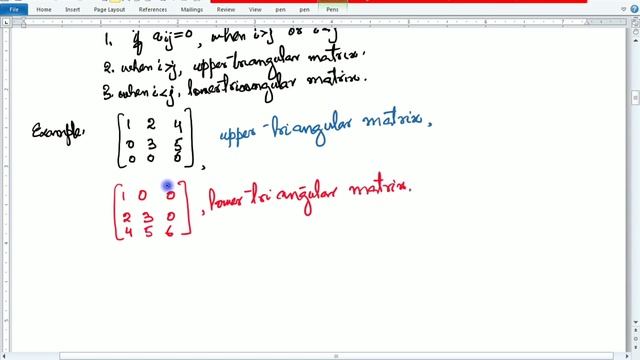 File Home Insert Page Layout References Mailings Review View pen pen pen Pens
1. if aij=0, when i>j or i<j
2. when i>j, upper-triangular matrix.
3. when i<j, lower triangular matrix.
Example: [1 2 4
0 3 5
0 0 0], upper-triangular matrix,
[1 0 0
2 3 0
4 5 6], lower-triangular matrix.